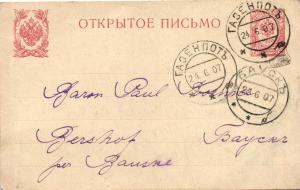 ОТКРЫТОЕ ПИСЬМО
ГАЗЕНПОТЬ
24.6.07
ГАЗЕНПОТЬ
24.6.07
БАУСКЪ
6.07
Baron Paul
Bershof Bayckr
per Bauske